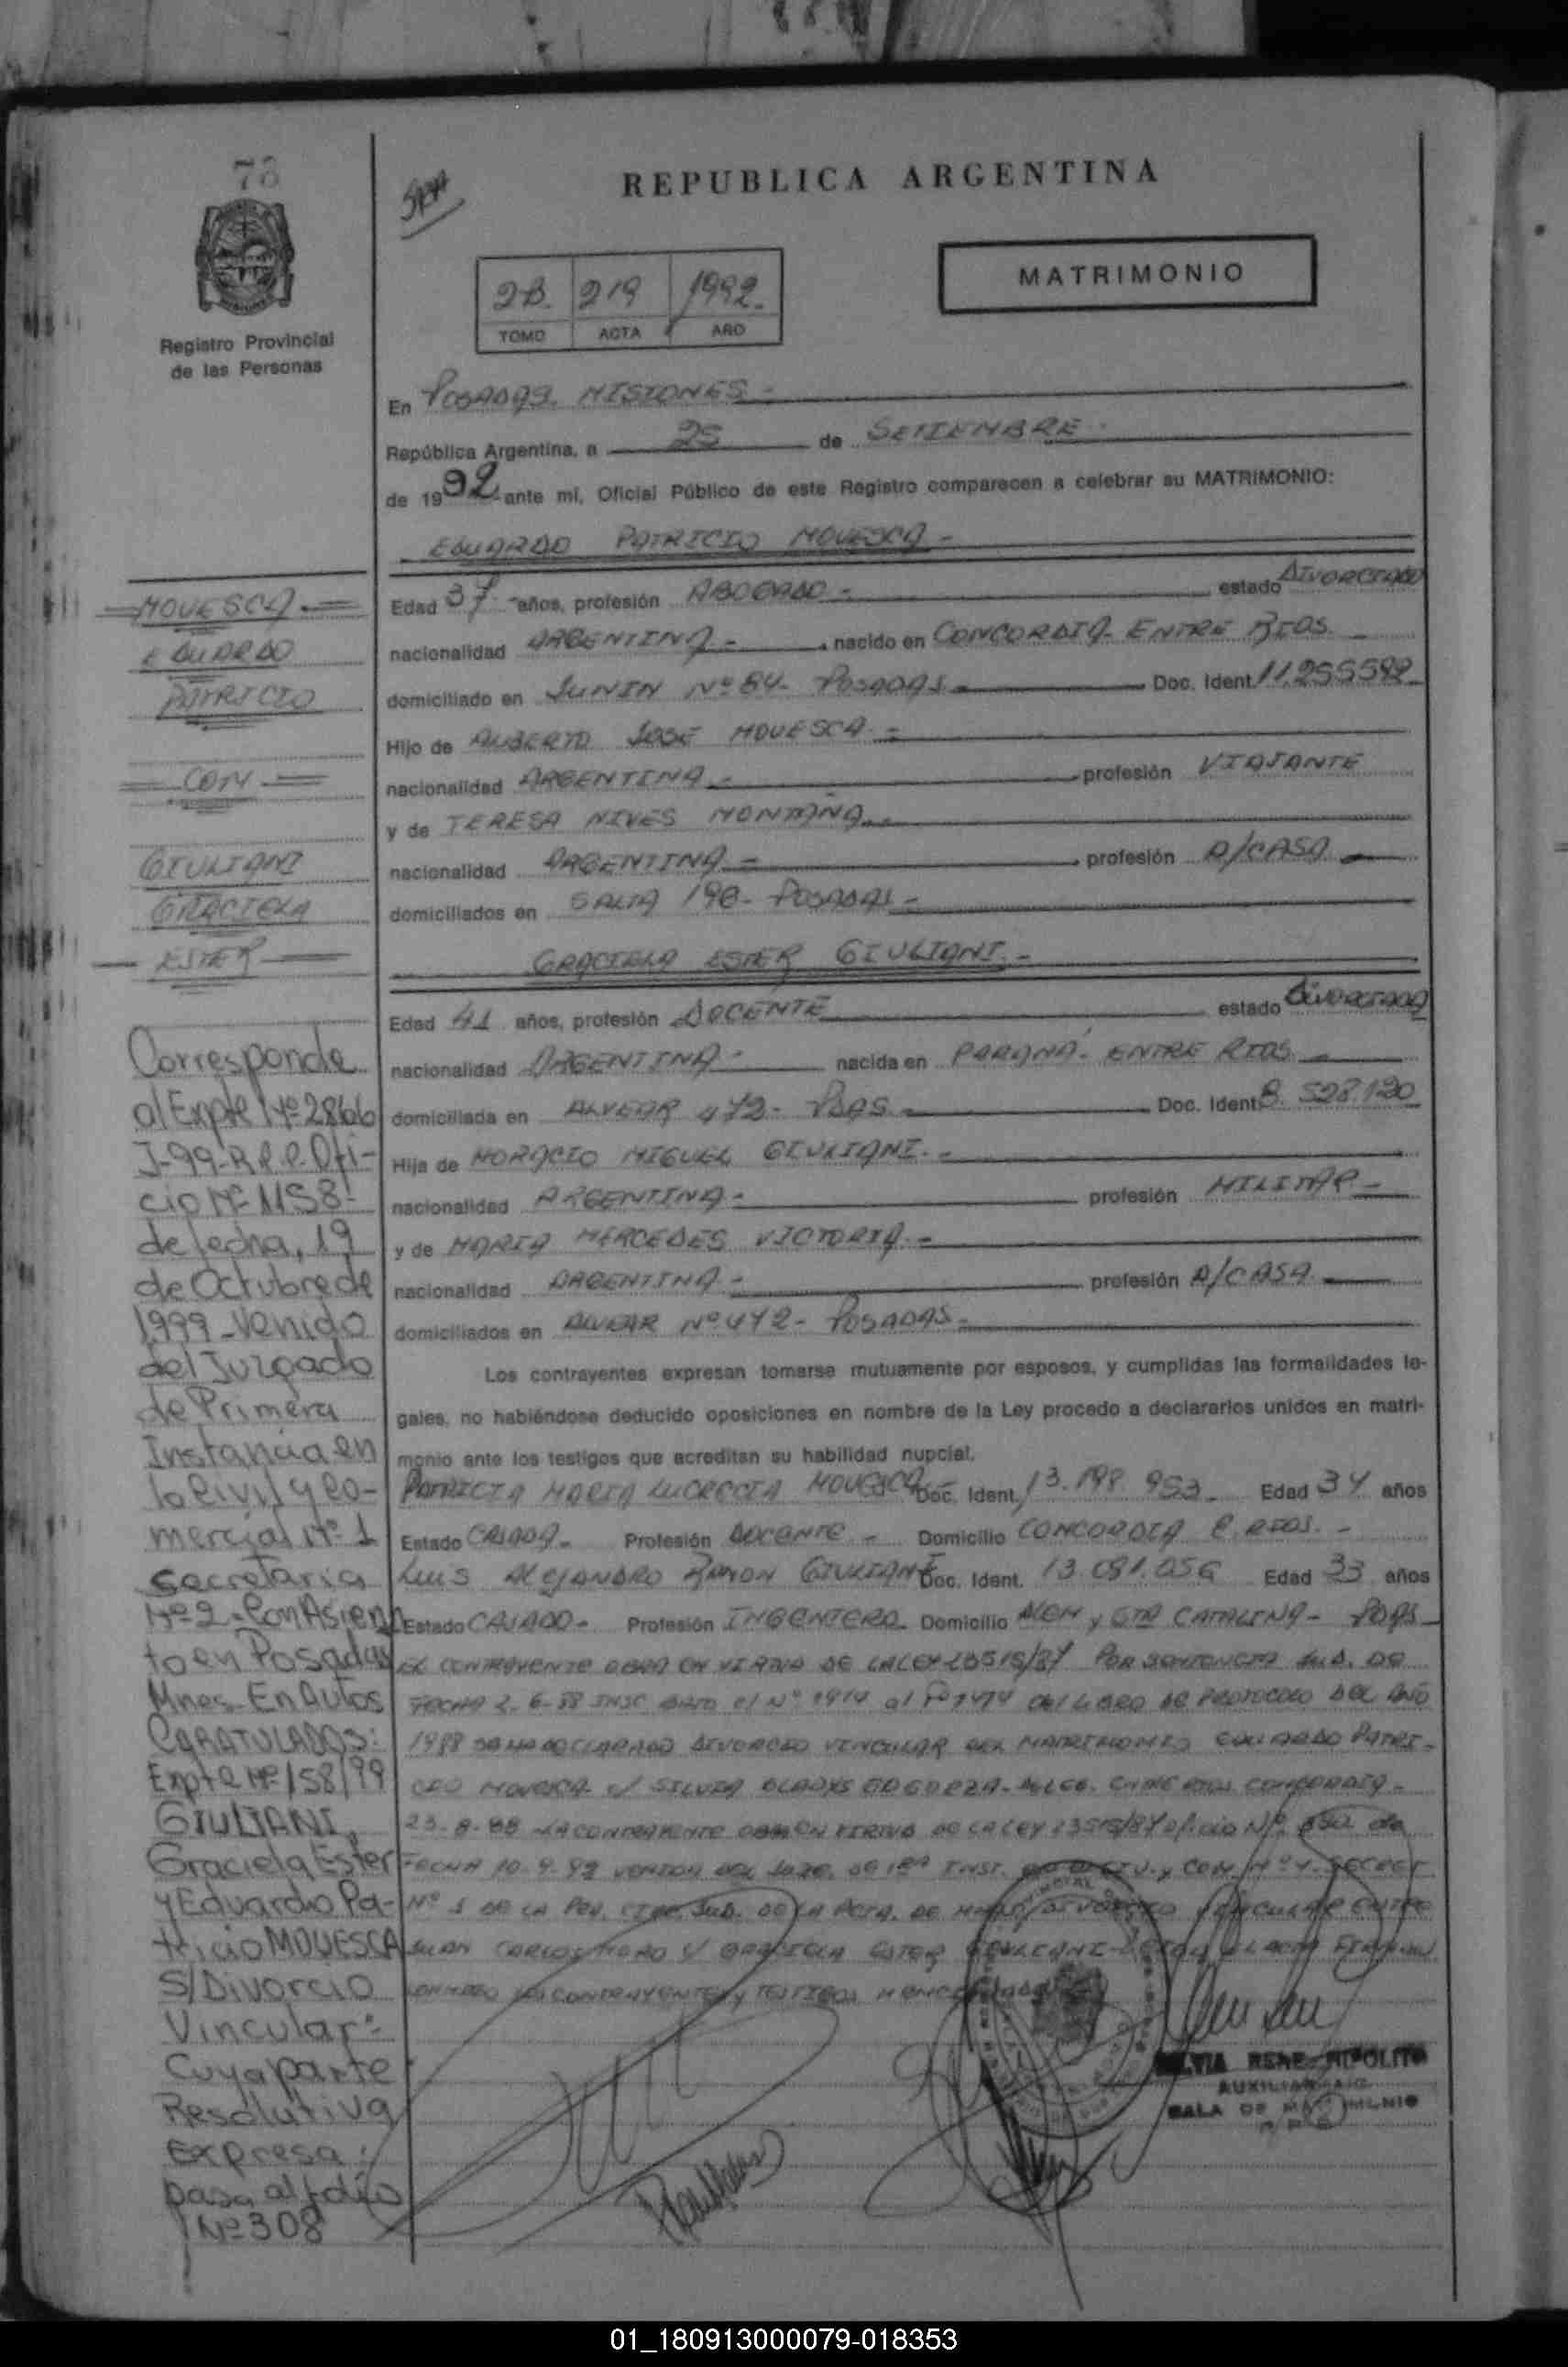 73
REPUBLICA ARGENTINA
MATRIMONIO
2B. 219 1992.
TOMO ACTA AÑO
Registro Provincial
de las Personas
En POSADAS. MISIONES -
República Argentina, a 25 de SETIEMBRE -
de 1992 ante mí, Oficial Público de este Registro comparecen a celebrar su MATRIMONIO:
EDUARDO PATRICIO MOVESCA -
Edad 37 años, profesión ABOGADO - estado DIVORCIADO
nacionalidad ARGENTINA - nacido en CONCORDIA - ENTRE RIOS
domiciliado en JUNIN Nº 84 - POSADAS - Doc. Ident. 11.255592
Hijo de ALBERTO JOSE MOVESCA -
nacionalidad ARGENTINA - profesión VIAJANTE
y de TERESA NIVES MONTAÑA -
nacionalidad ARGENTINA - profesión A/CASA
domiciliados en SALTA 196 - POSADAS -
GRACIELA ESTER GIULIANI -
Edad 41 años, profesión DOCENTE estado DIVORCIADA
nacionalidad ARGENTINA - nacida en PARANÁ - ENTRE RIOS
domiciliada en ALVEAR 472 - PDAS - Doc. Ident. 528.120
Hija de HORACIO MIGUEL GIULIANI -
nacionalidad ARGENTINA - profesión MILITAR -
y de MARIA MERCEDES VICTORIA -
nacionalidad ARGENTINA - profesión A/CASA
domiciliados en ALVEAR Nº 472 - POSADAS -
Los contrayentes expresan tomarse mutuamente por esposos, y cumplidas las formalidades le-
gales, no habiéndose deducido oposiciones en nombre de la Ley procedo a declararlos unidos en matri-
monio ante los testigos que acreditan su habilidad nupcial.
PATRICIA MARIA LUCRECIA MOVESCA Doc. Ident. 13.198.953 Edad 34 años
Estado CASADA - Profesión DOCENTE - Domicilio CONCORDIA E. RIOS -
LUIS ALEJANDRO RAMON GIULIANI Doc. Ident. 13.081.056 Edad 33 años
Estado CASADO - Profesión INGENIERO - Domicilio ALEM y STA CATALINA - PDAS -
EL CONTRAYENTE OBRA EN VIRTUD DE LA LEY 23515/87 POR SENTENCIA JUD. DE
FECHA 2-6-88 INSC BAJO el Nº 1914 al Fº 1474 del LIBRO DE PROTOCOLO DEL AÑO
1988 SE HA DECLARADO DIVORCIO VINCULAR DEL MATRIMONIO EDUARDO PATRI-
CIO MOVESCA c/ SILVIA GLADYS CONCORDIA -
23-8-88 LA CONTRAYENTE OBRA EN VIRTUD DE LA LEY 23515/87 oficio Nº de
FECHA 10-9-92 VENIDA DEL JUZG. DE 1ra INST. y COM. Nº 4 SECRET
Nº 1 DE LA JUD. DE LA DIVORCIO VINCULAR ENTRE
JUAN CARLOS y GRACIELA ESTER GIULIANI
CONMIGO LOS CONTRAYENTES y TESTIGOS
RENE HIPOLITO
AUXILIAR
SALA DE MATRIMONIO
MOVESCA
EDUARDO
PATRICIO
CON
GIULIANI
GRACIELA
ESTER
Corresponde
al Expte Nº 2866
J-99-R.P.P. Ofi-
cio Nº 1158-
de fecha, 19
de Octubre de
1999 - Venido
del Juzgado
de Primera
Instancia en
lo Civil y Co-
mercial Nº 1
Secretaria
Nº 2 - Con Asien
to en Posadas
Mnes - En Autos
CARATULADOS:
Expte Nº 158/99
GIULIANI,
Graciela Ester
y Eduardo Pa-
tricio MOVESCA
S/Divorcio
Vincular:
Cuya parte
Resolutiva
Expresa:
pasa al folio
Nº 308
01_180913000079-018353